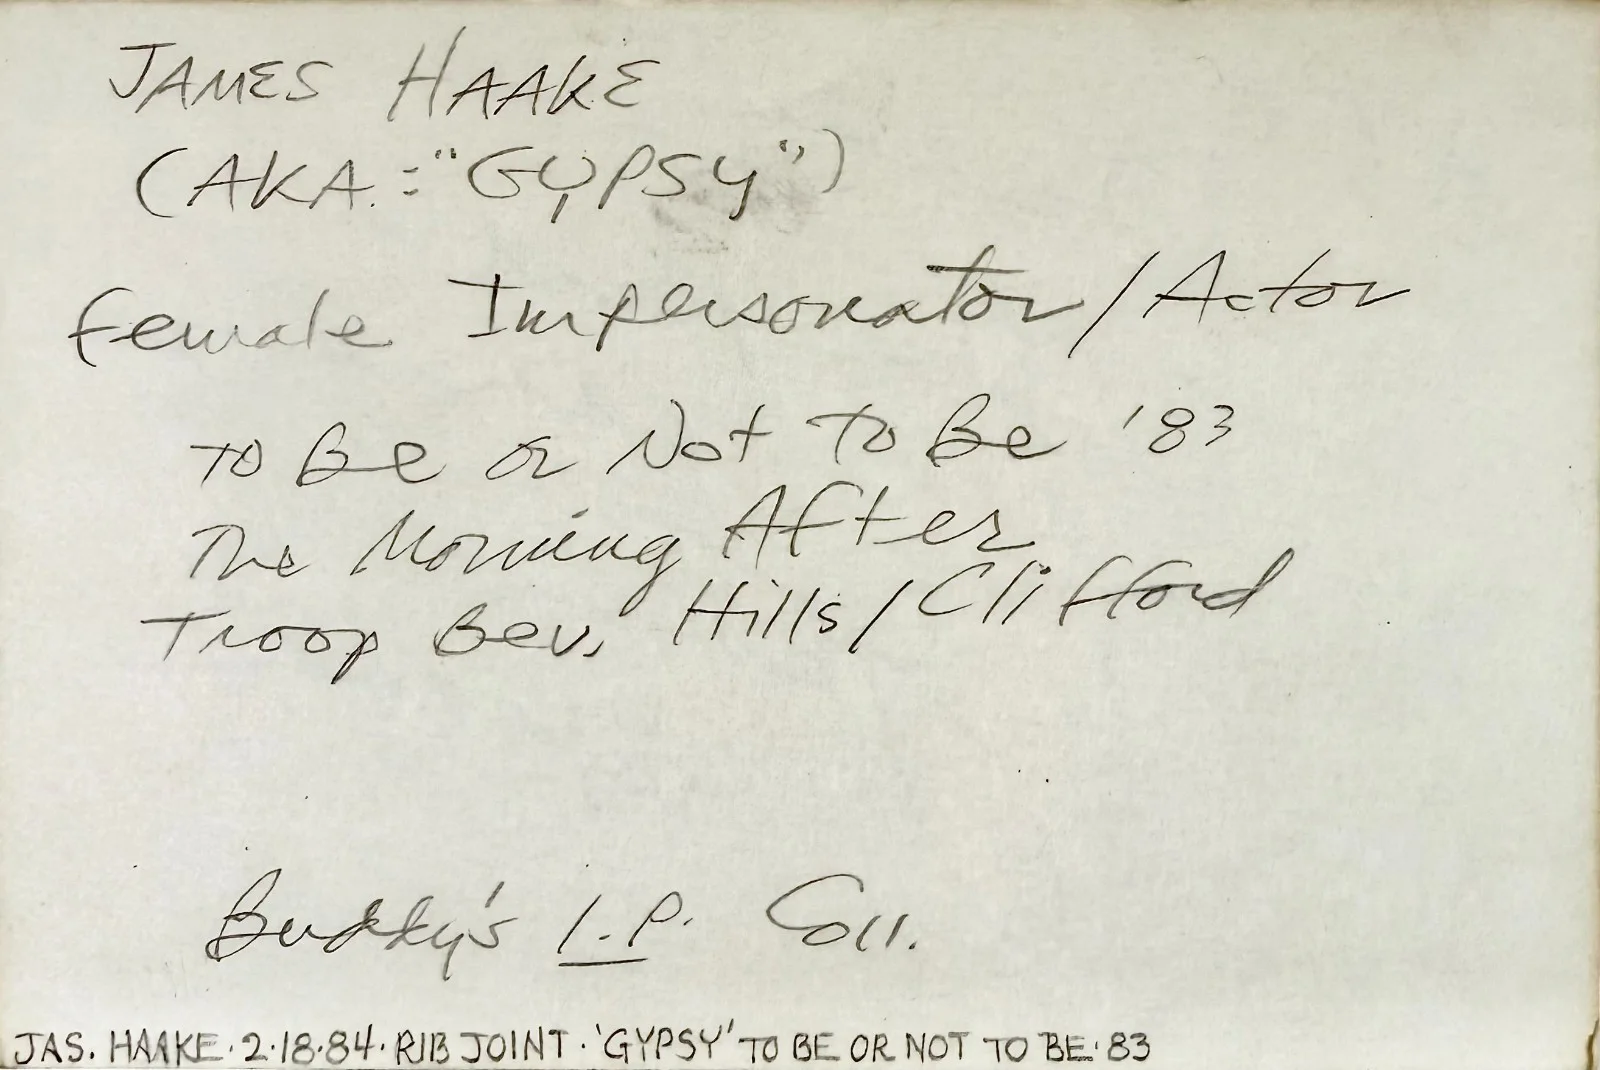 JAMES HAAKE
(AKA.: "GYPSY")
Female Impersonator/Actor
To Be or Not To Be '83
The Morning After
Troop Bev. Hills/Clifford
Buddy's I.P. Coll.
JAS. HAAKE · 2·18·84 · RIB JOINT · 'GYPSY' TO BE OR NOT TO BE · 83